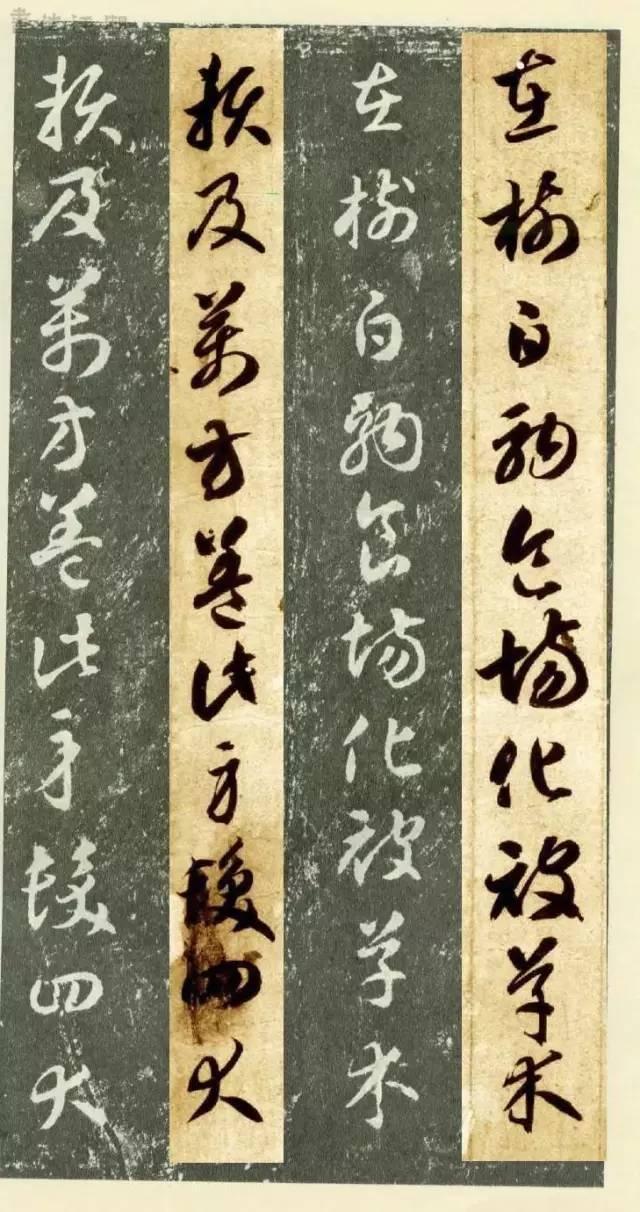 在樹白駒食場化被草木
在樹白駒食場化被草木
賴及萬方蓋此身髮四大
賴及萬方蓋此身髮四大